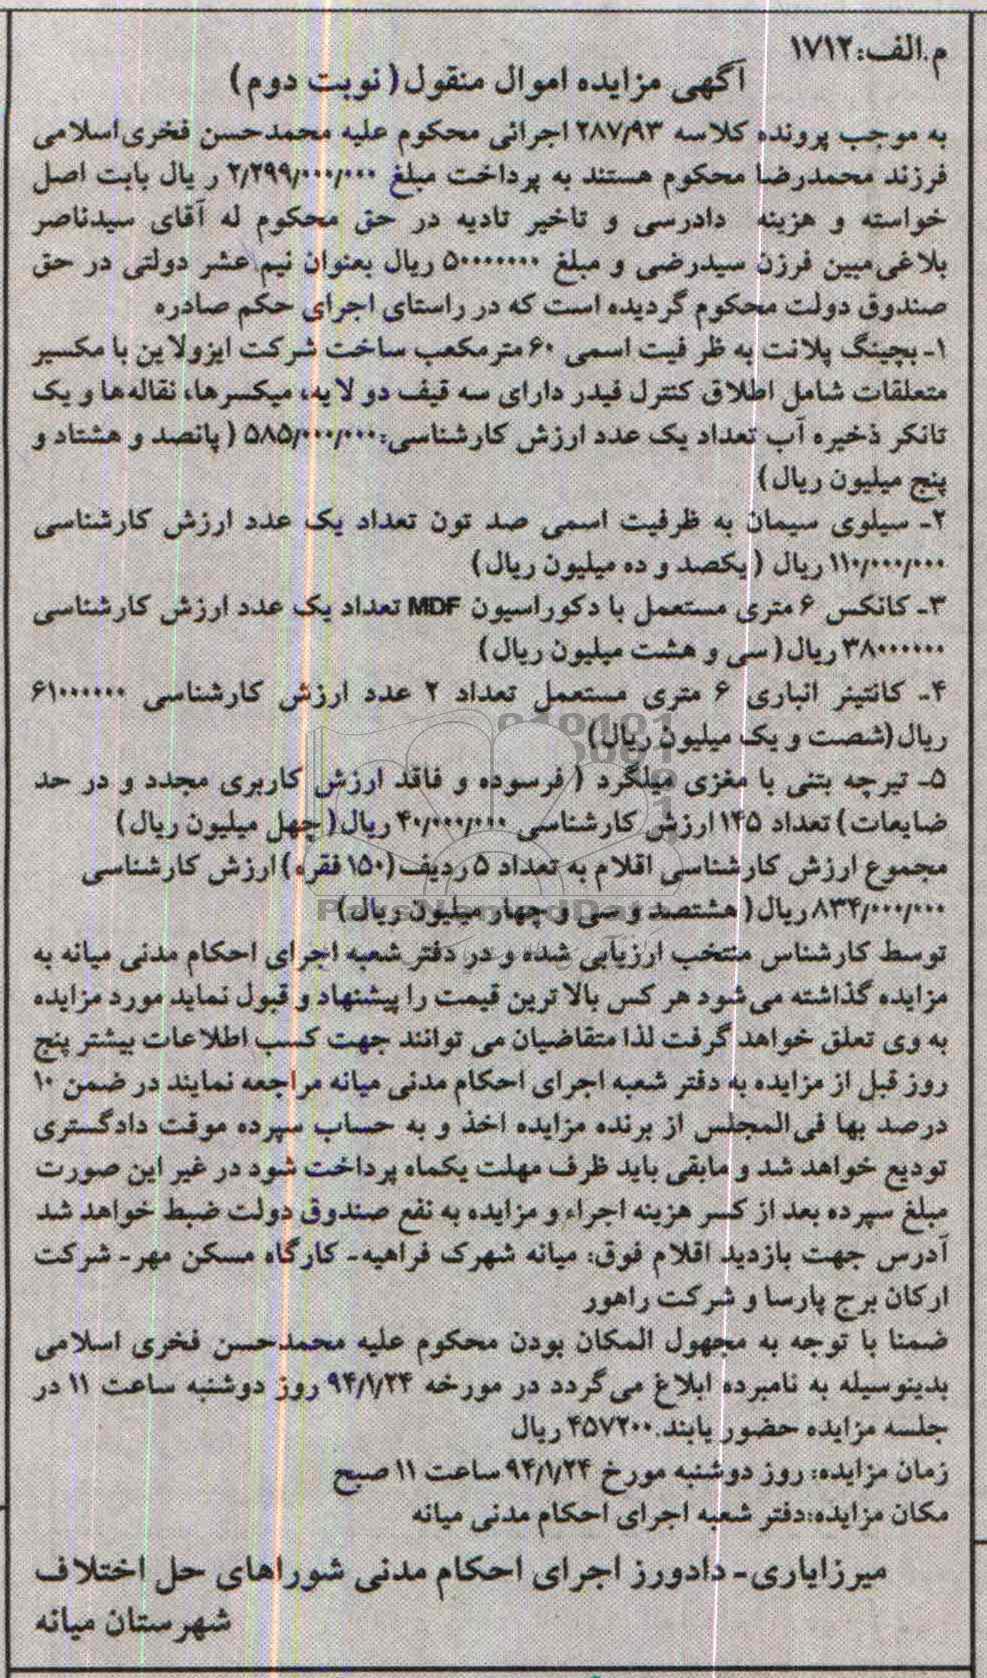 م.الف:۱۷۱۲
آگهی مزایده اموال منقول( نوبت دوم)
به موجب پرونده کلاسه ۲۸۷/۹۳ اجرائی محکوم علیه محمدحسن فخری‌اسلامی
فرزند محمدرضا محکوم هستند به پرداخت مبلغ ۲/۲۹۹/۰۰۰/۰۰۰ ر یال بابت اصل
خواسته و هزینه دادرسی و تاخیر تادیه در حق محکوم له آقای سیدناصر
بلاغی‌مبین فرزن سیدرضی و مبلغ ۵۰۰۰۰۰۰۰ ریال بعنوان نیم عشر دولتی در حق
صندوق دولت محکوم گردیده است که در راستای اجرای حکم صادره
۱- بچینگ پلانت به ظر فیت اسمی ۶۰ مترمکعب ساخت شرکت ایزولاین با مکسیر
متعلقات شامل اطلاق کنترل فیدر دارای سه قیف دو لایه، میکسرها، نقاله‌ها و یک
تانکر ذخیره آب تعداد یک عدد ارزش کارشناسی:۵۸۵/۰۰۰/۰۰۰ ( پانصد و هشتاد و
پنج میلیون ریال)
۲- سیلوی سیمان به ظرفیت اسمی صد تون تعداد یک عدد ارزش کارشناسی
۱۱۰/۰۰۰/۰۰۰ ریال ( یکصد و ده میلیون ریال)
۳- کانکس ۶ متری مستعمل با دکوراسیون MDF تعداد یک عدد ارزش کارشناسی
۳۸۰۰۰۰۰۰ ریال( سی و هشت میلیون ریال)
۴- کانتینر انباری ۶ متری مستعمل تعداد ۲ عدد ارزش کارشناسی ۶۱۰۰۰۰۰۰
ریال(شصت و یک میلیون ریال)
۵- تیرچه بتنی با مغزی میلگرد ( فرسوده و فاقد ارزش کاربری مجدد و در حد
ضایعات) تعداد ۱۴۵ ارزش کارشناسی ۴۰/۰۰۰/۰۰۰ ریال( چهل میلیون ریال)
مجموع ارزش کارشناسی اقلام به تعداد ۵ ردیف(۱۵۰ فقره) ارزش کارشناسی
۸۳۴/۰۰۰/۰۰۰ ریال( هشتصد و سی و چهار میلیون ریال)
توسط کارشناس منتخب ارزیابی شده و در دفتر شعبه اجرای احکام مدنی میانه به
مزایده گذاشته می‌شود هر کس بالا ترین قیمت را پیشنهاد و قبول نماید مورد مزایده
به وی تعلق خواهد گرفت لذا متقاضیان می توانند جهت کسب اطلاعات بیشتر پنج
روز قبل از مزایده به دفتر شعبه اجرای احکام مدنی میانه مراجعه نمایند در ضمن ۱۰
درصد بها فی‌المجلس از برنده مزایده اخذ و به حساب سپرده موقت دادگستری
تودیع خواهد شد و مابقی باید ظرف مهلت یکماه پرداخت شود در غیر این صورت
مبلغ سپرده بعد از کسر هزینه اجراء و مزایده به نفع صندوق دولت ضبط خواهد شد
آدرس جهت بازدید اقلام فوق: میانه شهرک فراهیه- کارگاه مسکن مهر- شرکت
ارکان برج پارسا و شرکت راهور
ضمنا با توجه به مجهول المکان بودن محکوم علیه محمدحسن فخری اسلامی
بدینوسیله به نامبرده ابلاغ می‌گردد در مورخه ۹۴/۱/۲۴ روز دوشنبه ساعت ۱۱ در
جلسه مزایده حضور یابند.۴۵۷۲۰۰ ریال
زمان مزایده: روز دوشنبه مورخ ۹۴/۱/۲۴ ساعت ۱۱ صبح
مکان مزایده:دفتر شعبه اجرای احکام مدنی میانه
میرزایاری- دادورز اجرای احکام مدنی شوراهای حل اختلاف
شهرستان میانه